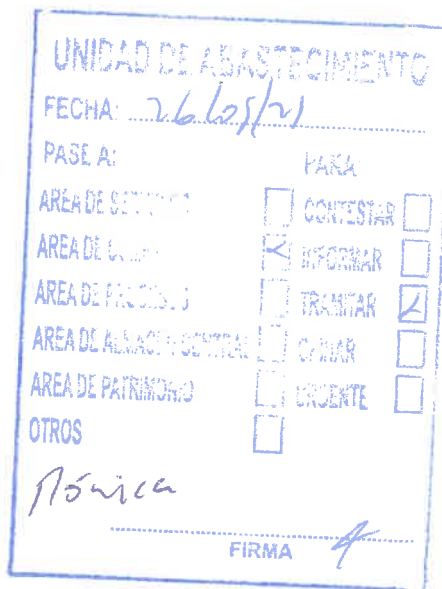 UNIDAD DE ABASTECIMIENTO
FECHA: 26/05/21
PASE A: PARA
AREA DE CONTESTAR
AREA DE INFORMAR
AREA DE PROCESOS TRAMITAR
AREA DE ALMACEN CENTRAL
AREA DE PATRIMONIO URGENTE
OTROS
Mónica
FIRMA